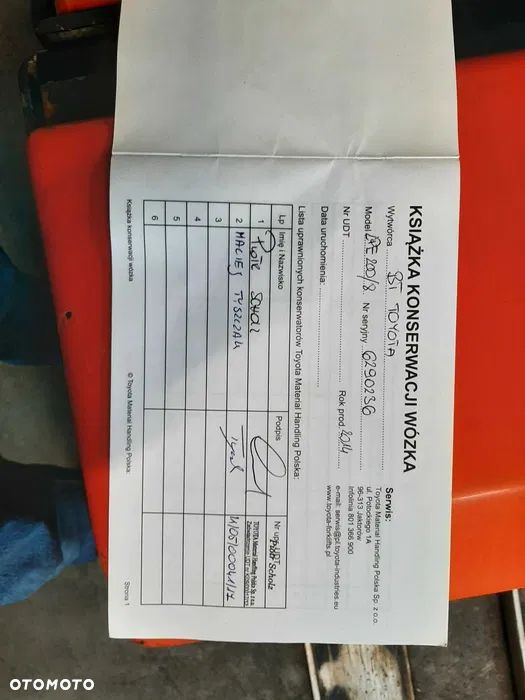 KSIĄŻKA KONSERWACJI WÓZKA
Wytwórca BT TOYOTA
Model LPE 200/8 Nr seryjny 6290236
Nr UDT Rok prod 2014
Data uruchomienia:
Serwis:
Toyota Material Handling Polska Sp. z o.o.
ul. Potockiego 1A
96-313 Jaktorów
infolinia 801 366 900
e-mail: serwis@pl.toyota-industries.eu
www.toyota-forklifts.pl
Lista uprawnionych konserwatorów Toyota Material Handling Polska:
Lp Imię i Nazwisko Podpis Nr
1 Piotr SCHOLZ
Piotr Scholz
TOYOTA Material Handling Polska Sp. z o.o.
2 MACIEJ TYSZCZAK
3
4
5
6
Książka konserwacji wózka © Toyota Material Handling Polska: Strona 1
OTOMOTO